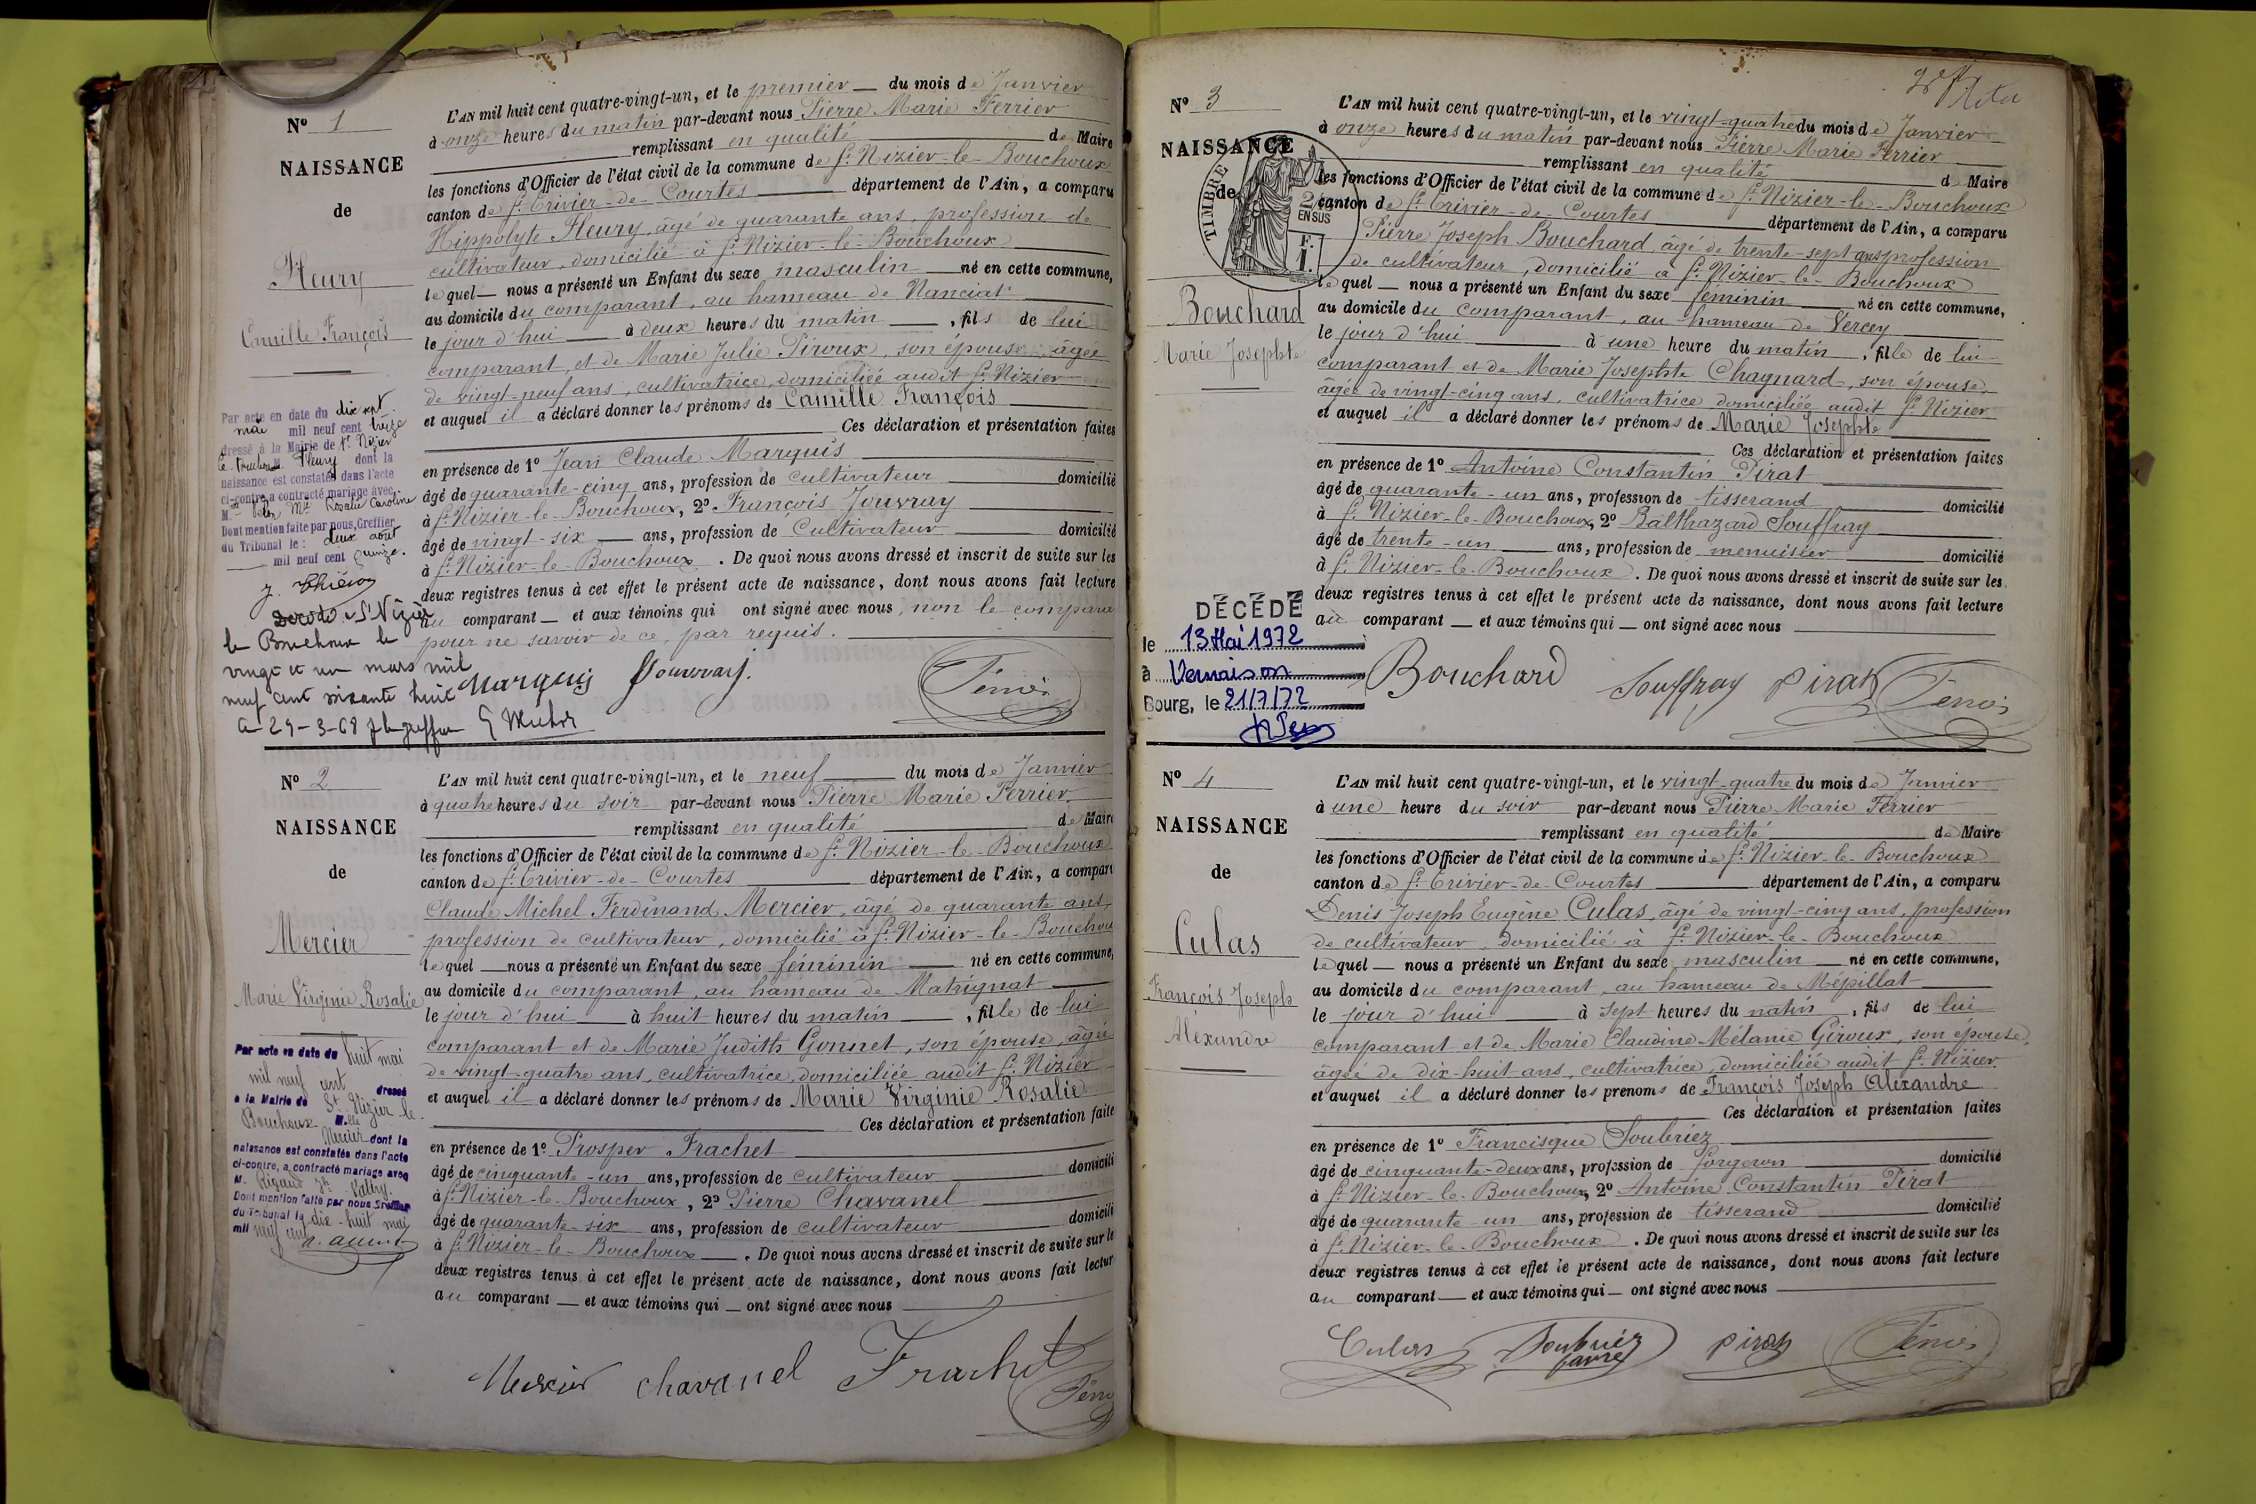 N° 1
NAISSANCE
de
Fleury
Camille François
L'AN mil huit cent quatre-vingt-un, et le premier du mois de Janvier
à onze heures du matin par-devant nous Pierre Marie Ferrier
remplissant en qualité de Maire
les fonctions d'Officier de l'état civil de la commune de St. Nizier-le-Bouchoux
canton de St. Trivier-de-Courtes département de l'Ain, a comparu
Hippolyte Fleury, âgé de quarante ans, profession de
cultivateur, domicilié à St. Nizier-le-Bouchoux
lequel nous a présenté un Enfant du sexe masculin né en cette commune,
au domicile du comparant, au hameau de Nanciat
le jour d'hui à deux heures du matin, fils de lui
comparant, et de Marie Julie Piroux, son épouse, âgée
de vingt-neuf ans, cultivatrice, domiciliée audit St. Nizier
et auquel il a déclaré donner les prénoms de Camille François
Ces déclaration et présentation faites
en présence de 1° Jean Claude Marquis
âgé de quarante-cinq ans, profession de cultivateur domicilié
à St. Nizier-le-Bouchoux, 2° François Jouvray
âgé de vingt-six ans, profession de Cultivateur domicilié
à St. Nizier-le-Bouchoux. De quoi nous avons dressé et inscrit de suite sur les
deux registres tenus à cet effet le présent acte de naissance, dont nous avons fait lecture
au comparant et aux témoins qui ont signé avec nous, non le compara
pour ne savoir de ce, par requis.
Marquis Jouvray
Par acte en date du dix sept
mai mil neuf cent treize
dressé à la Mairie de St. Nizier
le Bouchoux M. Fleury dont la
naissance est constatée dans l'acte
ci-contre a contracté mariage avec
M. Rosalie Caroline
Dont mention faite par nous, Greffier
du Tribunal le : deux août
mil neuf cent quinze.
Décédé à St Nizier
le Bouchoux le
vingt et un mars mil
neuf cent soixante huit
a 29-3-68
N° 2
NAISSANCE
de
Mercier
Marie Virginie Rosalie
L'AN mil huit cent quatre-vingt-un, et le neuf du mois de Janvier
à quatre heures du soir par-devant nous Pierre Marie Ferrier
remplissant en qualité de Maire
les fonctions d'Officier de l'état civil de la commune de St. Nizier-le-Bouchoux
canton de St. Trivier-de-Courtes département de l'Ain, a comparu
Claude Michel Ferdinand Mercier, âgé de quarante ans,
profession de cultivateur, domicilié à St. Nizier-le-Bouchoux
lequel nous a présenté un Enfant du sexe féminin né en cette commune,
au domicile du comparant, au hameau de Matrignat
le jour d'hui à huit heures du matin, fille de lui
comparant et de Marie Judith Gonnet, son épouse, âgée
de vingt-quatre ans, cultivatrice, domiciliée audit St. Nizier
et auquel il a déclaré donner les prénoms de Marie Virginie Rosalie
Ces déclaration et présentation faite
en présence de 1° Prosper Frachet
âgé de cinquante-un ans, profession de cultivateur domicili
à St. Nizier-le-Bouchoux, 2° Pierre Chavanel
âgé de quarante-six ans, profession de cultivateur domicili
à St. Nizier-le-Bouchoux. De quoi nous avons dressé et inscrit de suite sur le
deux registres tenus à cet effet le présent acte de naissance, dont nous avons fait lectur
au comparant et aux témoins qui ont signé avec nous
Mercier chavanel Frachet
Par acte en date du huit mai
mil neuf cent dressé
à la Mairie de St. Nizier-le-
Bouchoux Melle
Mercier dont la
naissance est constatée dans l'acte
ci-contre, a contracté mariage avec
M. Rigaud
Dont mention faite par nous Greffier
du Tribunal le dix-huit mai
mil neuf cent
N° 3
NAISSANCE
de
TIMBRE
EN SUS
Bouchard
Marie Josephte
L'AN mil huit cent quatre-vingt-un, et le vingt-quatre du mois de Janvier
à onze heures du matin par-devant nous Pierre Marie Ferrier
remplissant en qualité de Maire
les fonctions d'Officier de l'état civil de la commune de St. Nizier-le-Bouchoux
canton de St. Trivier-de-Courtes département de l'Ain, a comparu
Pierre Joseph Bouchard, âgé de trente-sept ans profession
de cultivateur, domicilié à St. Nizier-le-Bouchoux
lequel nous a présenté un Enfant du sexe féminin né en cette commune,
au domicile du comparant, au hameau de Vercey
le jour d'hui à une heure du matin, fille de lui
comparant et de Marie Josephte Chagnard, son épouse,
âgée de vingt-cinq ans, cultivatrice domiciliée audit St. Nizier
et auquel il a déclaré donner les prénoms de Marie Josephte
Ces déclaration et présentation faites
en présence de 1° Antoine Constantin Pirat
âgé de quarante-un ans, profession de tisserand domicilié
à St. Nizier-le-Bouchoux, 2° Balthazard Souffray
âgé de trente-un ans, profession de menuisier domicilié
à St. Nizier-le-Bouchoux. De quoi nous avons dressé et inscrit de suite sur les
deux registres tenus à cet effet le présent acte de naissance, dont nous avons fait lecture
au comparant et aux témoins qui ont signé avec nous
Bouchard Souffray Pirat
DÉCÉDÉ
le 13 Mai 1972
à Vernaison
Bourg, le 21/7/72
N° 4
NAISSANCE
de
Culas
François Joseph
Alexandre
L'AN mil huit cent quatre-vingt-un, et le vingt-quatre du mois de Janvier
à une heure du soir par-devant nous Pierre Marie Ferrier
remplissant en qualité de Maire
les fonctions d'Officier de l'état civil de la commune de St. Nizier-le-Bouchoux
canton de St. Trivier-de-Courtes département de l'Ain, a comparu
Denis Joseph Eugène Culas, âgé de vingt-cinq ans, profession
de cultivateur, domicilié à St. Nizier-le-Bouchoux
lequel nous a présenté un Enfant du sexe masculin né en cette commune,
au domicile du comparant, au hameau de Mépillat
le jour d'hui à sept heures du matin, fils de lui
comparant et de Marie Claudine Mélanie Giroux, son épouse,
âgée de dix-huit ans, cultivatrice, domiciliée audit St. Nizier.
et auquel il a déclaré donner les prenoms de François Joseph Alexandre
Ces déclaration et présentation faites
en présence de 1° Francisque Soubriez
âgé de cinquante-deux ans, profession de forgeron domicilié
à St. Nizier-le-Bouchoux, 2° Antoine Constantin Pirat
âgé de quarante un ans, profession de tisserand domicilié
à St. Nizier-le-Bouchoux. De quoi nous avons dressé et inscrit de suite sur les
deux registres tenus à cet effet le présent acte de naissance, dont nous avons fait lecture
au comparant et aux témoins qui ont signé avec nous
Culas Soubriéz Pirat